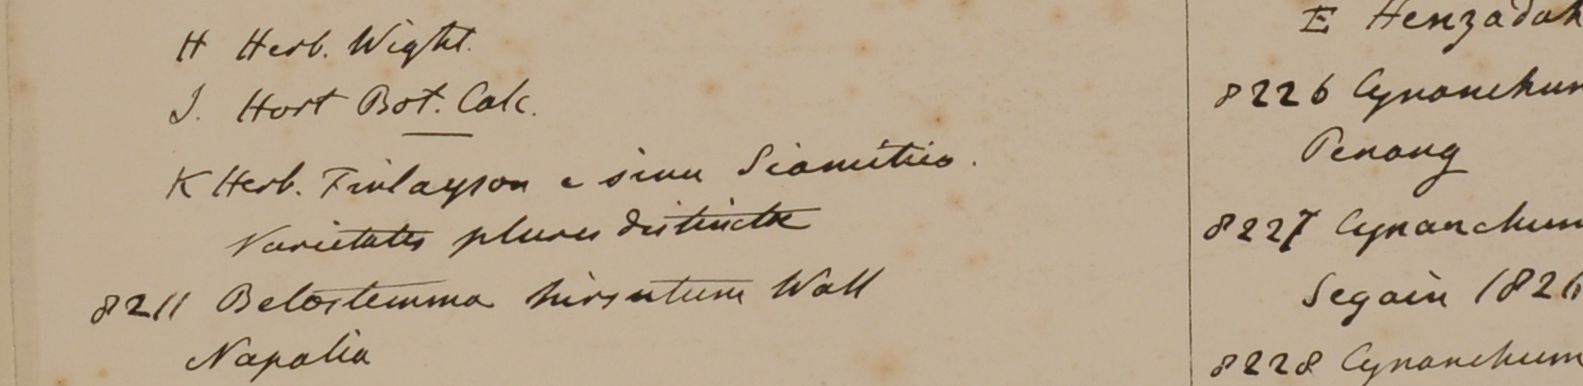 H Herb. Wight.
J. Hort Bot. Calc.
K Herb. Finlayson e sinu Siamitico.
Varietates plures distinctæ
8211 Belostemma hirsutum Wall
Napalia
E Henzadah
8226 Cynanchum
Penang
8227 Cynanchum
Segain 1826
8228 Cynanchum